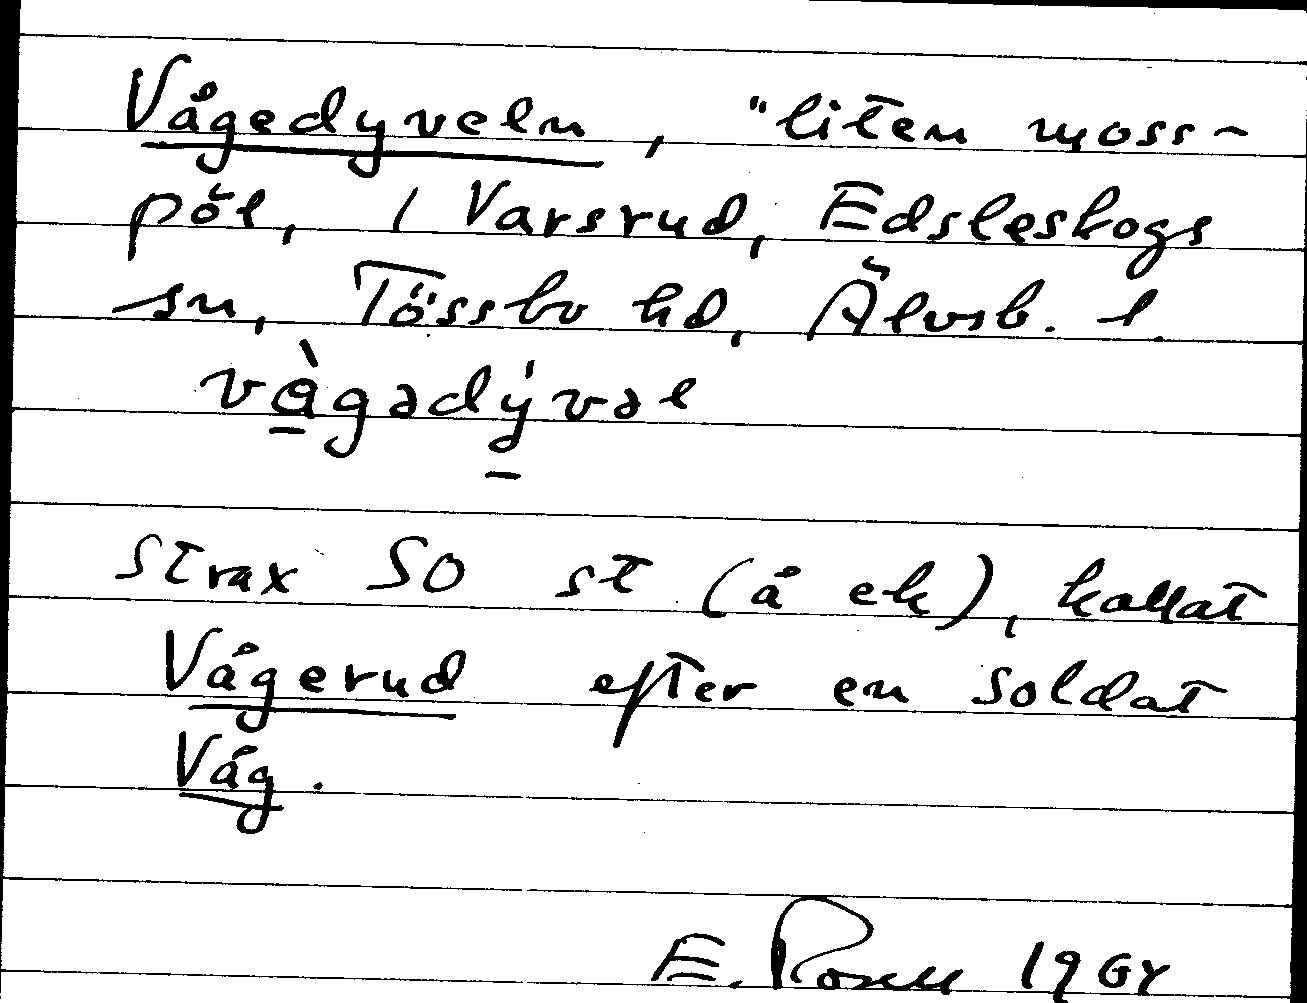 Vågedyveln, "liten moss-
pöl, i Varsrud, Edsleskogs
sn, Tössbo hd, Älvsb. l.
vàgədývəl
strax SO st (å ek), kallat
Vågerud efter en soldat
Våg.
E. Rosell 1964